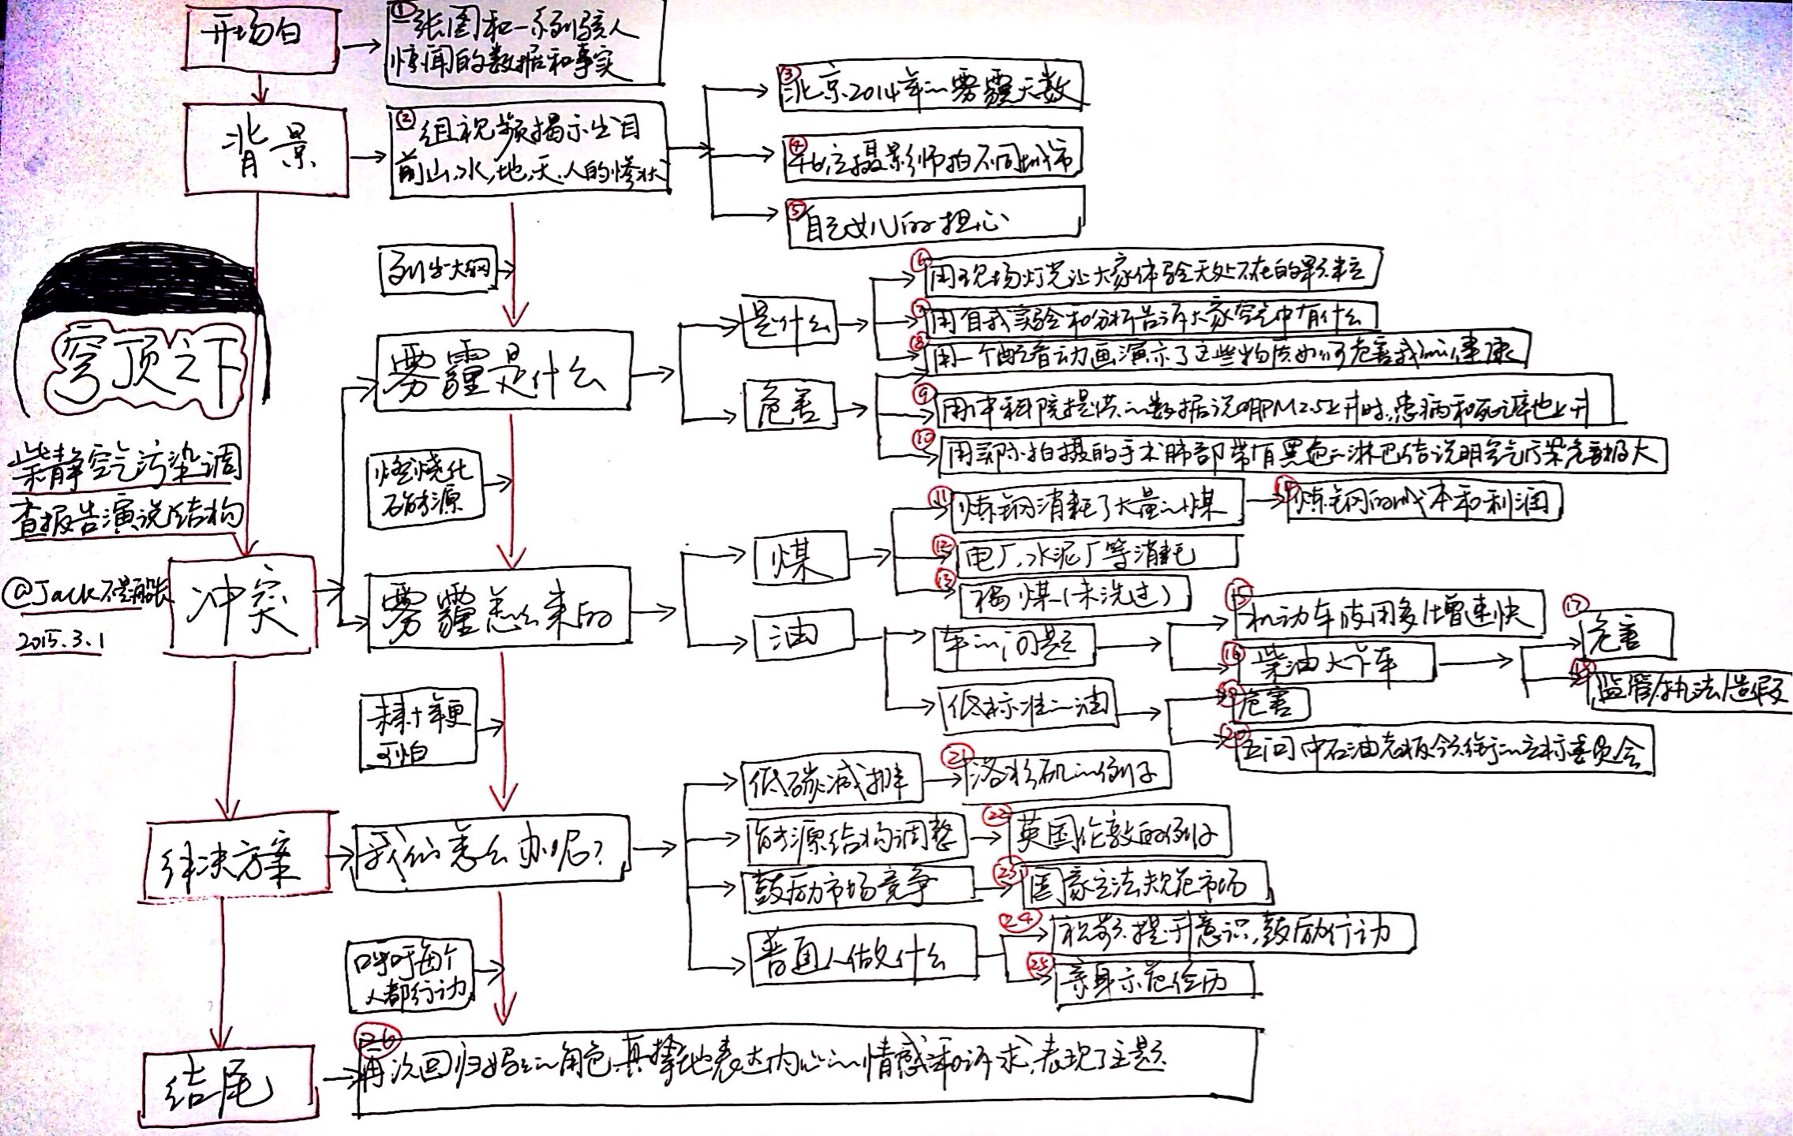 开场白
①张图和一系列骇人
惊闻的数据和事实
背景
②组视频揭示出目
前山,水,地,天,人的惨状
③北京2014年的雾霾天数
④位摄影师拍不同城市
⑤自己女儿的担心
穹顶之下
柴静空气污染调
查报告演说结构
@Jack不是船长
2015.3.1
列出大纲
雾霾是什么
是什么
⑥用现场灯光让大家体验无处不在的颗粒
⑦用自我实验和分析告诉大家空气中有什么
⑧用一个配音动画演示了这些物质如何危害我们健康
危害
⑨用中科院提供的数据说明PM2.5上升时,患病和死亡率也上升
⑩用实际拍摄的手术肺部带有黑色的淋巴结说明空气污染危害极大
燃烧化
石能源
冲突
雾霾怎么来的
煤
⑪炼钢消耗了大量的煤
⑭炼钢的成本和利润
⑫电厂,水泥厂等消耗
⑬褐煤(未洗过)
油
车的问题
⑮机动车使用多/增速快
⑯柴油大卡车
⑰危害
⑱监管执法/造假
低标准的油
⑲危害
⑳
未来十年更
可怕
解决方案
我们怎么办呢?
低碳减排
㉑洛杉矶的例子
能源结构调整
㉒英国伦敦的例子
鼓励市场竞争
㉓国家立法规范市场
普通人做什么
㉔视频提升意识,鼓励行动
㉕亲身示范经历
呼吁每个
人都行动
结尾
㉖再次回归妈妈的角色,真挚地表达内心的情感和诉求,表现了主题